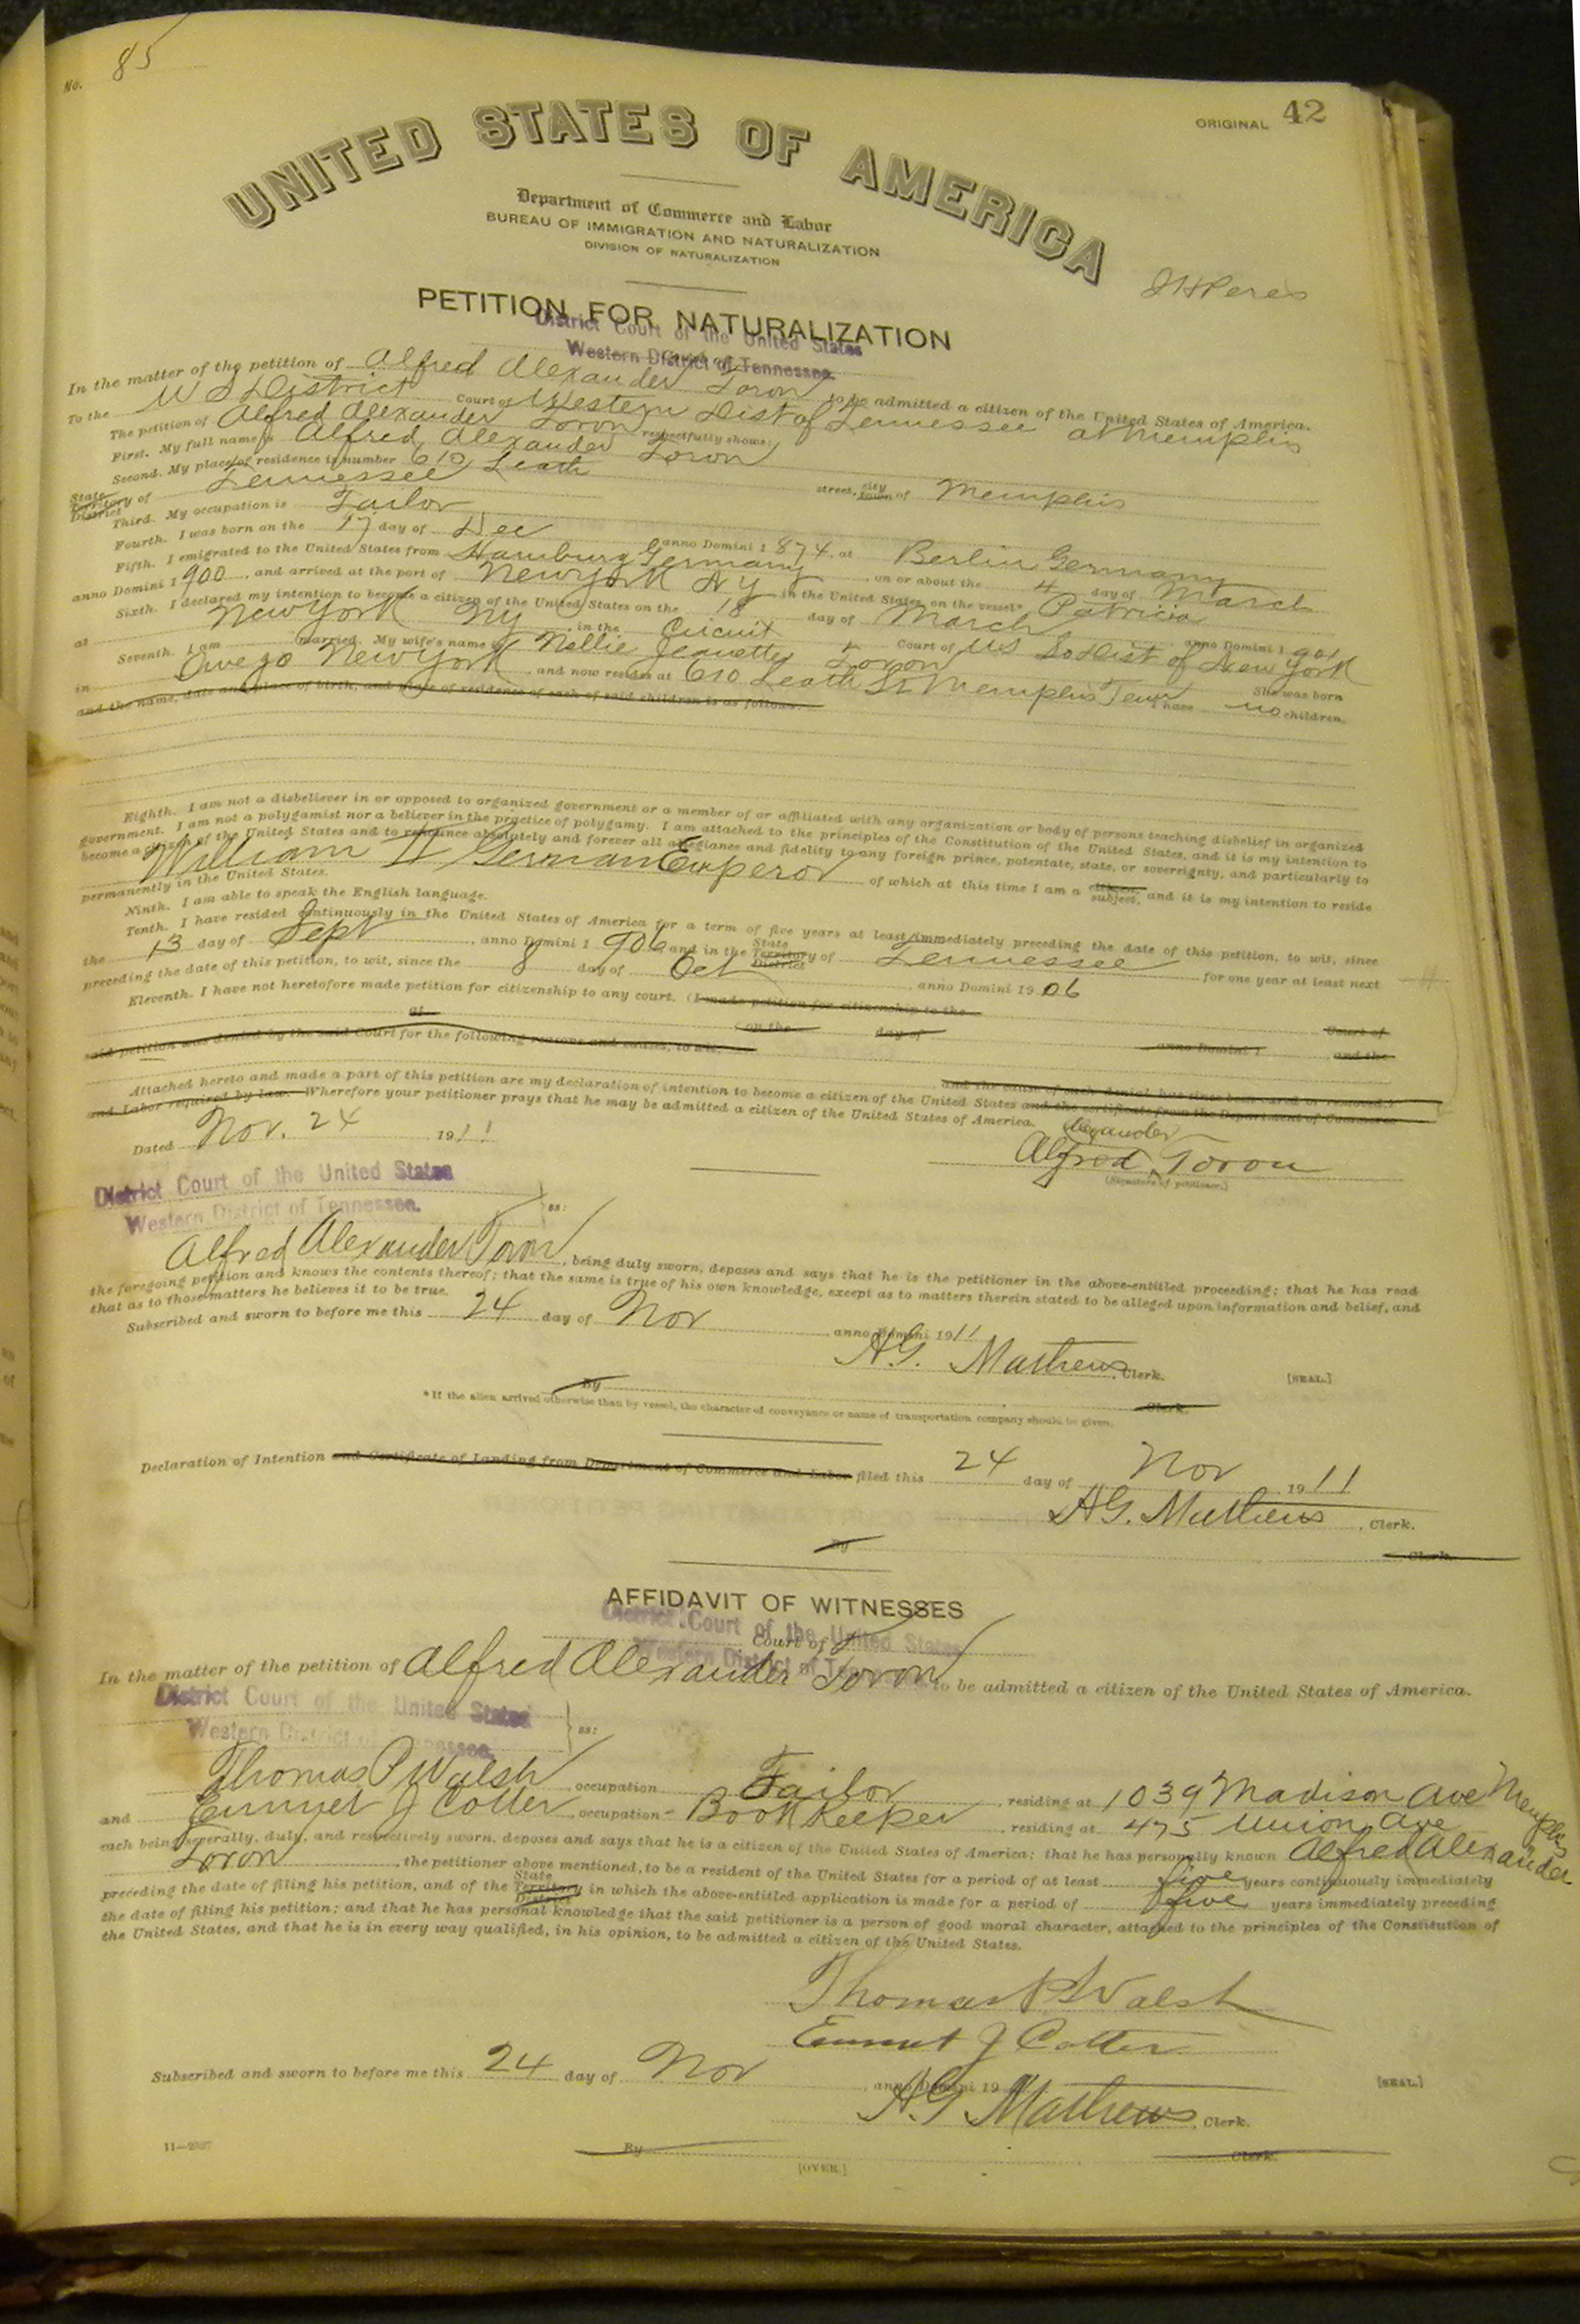 No. 85
ORIGINAL 42
UNITED STATES OF AMERICA
Department of Commerce and Labor
BUREAU OF IMMIGRATION AND NATURALIZATION
DIVISION OF NATURALIZATION
J H Peres
PETITION FOR NATURALIZATION
District Court of the United States
Western District of Tennessee.
In the matter of the petition of Alfred Alexander Toron to be admitted a citizen of the United States of America.
To the U S District Court of Western Dist of Tennessee at Memphis
The petition of Alfred Alexander Toron respectfully shows:
First. My full name is Alfred Alexander Toron
Second. My place of residence is number 610 Leath street, city town of Memphis
State Territory District of Tennessee
Third. My occupation is Tailor
Fourth. I was born on the 17 day of Dec anno Domini 1 874, at Berlin Germany
Fifth. I emigrated to the United States from Hamburg Germany, on or about the 4 day of March
anno Domini 1 900, and arrived at the port of New York N Y in the United States, on the vessel* Patricia
Sixth. I declared my intention to become a citizen of the United States on the 18 day of March anno Domini 1 901
at New York Ny in the Circuit Court of US So Dist of New York
Seventh. I am married. My wife's name is Nellie Jeanette Toron She was born
in Owego New York and now resides at 610 Leath St Memphis Tenn I have no children,
and the name, date and place of birth, and place of residence of each of said children is as follows:
Eighth. I am not a disbeliever in or opposed to organized government or a member of or affiliated with any organization or body of persons teaching disbelief in organized
government. I am not a polygamist nor a believer in the practice of polygamy. I am attached to the principles of the Constitution of the United States, and it is my intention to
become a citizen of the United States and to renounce absolutely and forever all allegiance and fidelity to any foreign prince, potentate, state, or sovereignty, and particularly to
William II German Emperor of which at this time I am a citizen, subject, and it is my intention to reside
permanently in the United States.
Ninth. I am able to speak the English language.
Tenth. I have resided continuously in the United States of America for a term of five years at least immediately preceding the date of this petition, to wit, since
the 13 day of Sept, anno Domini 1 906 and in the State Territory District of Tennessee for one year at least next
preceding the date of this petition, to wit, since the 8 day of Oct, anno Domini 19 06
Eleventh. I have not heretofore made petition for citizenship to any court. (I made petition for citizenship to the
Court of at on the day of anno Domini 1 and the
said petition was denied by the said Court for the following reasons and causes, to wit,
and the cause of such denial has since been cured or removed.)
Attached hereto and made a part of this petition are my declaration of intention to become a citizen of the United States and the certificate from the Department of Commerce
and Labor required by law. Wherefore your petitioner prays that he may be admitted a citizen of the United States of America.
Dated Nov. 24 1911
Alexander
Alfred Toron
(Signature of petitioner.)
District Court of the United States
Western District of Tennessee.
ss:
Alfred Alexander Toron, being duly sworn, deposes and says that he is the petitioner in the above-entitled proceeding; that he has read
the foregoing petition and knows the contents thereof; that the same is true of his own knowledge, except as to matters therein stated to be alleged upon information and belief, and
that as to those matters he believes it to be true.
Subscribed and sworn to before me this 24 day of Nov, anno Domini 1911
A.G. Mathews, Clerk. [SEAL.]
By Clerk.
*If the alien arrived otherwise than by vessel, the character of conveyance or name of transportation company should be given.
Declaration of Intention and Certificate of Landing from Department of Commerce and Labor filed this 24 day of Nov 1911
A.G. Mathews, Clerk.
By Clerk.
AFFIDAVIT OF WITNESSES
District Court of the United States
Court of
Western District of Tennessee.
In the matter of the petition of Alfred Alexander Toron to be admitted a citizen of the United States of America.
District Court of the United States
Western District of Tennessee.
ss:
Thomas P Walsh, occupation Tailor, residing at 1039 Madison Ave Memphis
and Emmet J Cotter, occupation Book Keeper, residing at 475 Union Ave
each being severally, duly, and respectively sworn, deposes and says that he is a citizen of the United States of America; that he has personally known Alfred Alexander
Toron, the petitioner above mentioned, to be a resident of the United States for a period of at least five years continuously immediately
preceding the date of filing his petition, and of the State Territory District in which the above-entitled application is made for a period of five years immediately preceding
the date of filing his petition; and that he has personal knowledge that the said petitioner is a person of good moral character, attached to the principles of the Constitution of
the United States, and that he is in every way qualified, in his opinion, to be admitted a citizen of the United States.
Thomas P Walsh
Emmet J Cotter
Subscribed and sworn to before me this 24 day of Nov, anno Domini 19
A.G Mathews, Clerk. [SEAL.]
By Clerk.
[OVER.]